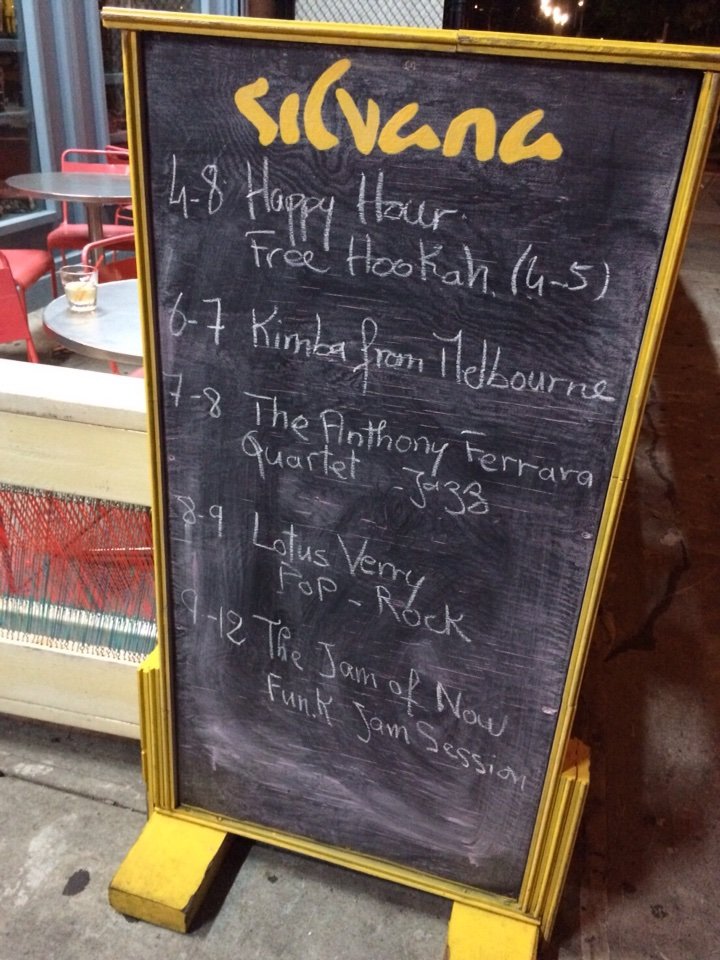 silvana
4-8 Happy Hour
Free Hookah. (4-5)
6-7 Kimba from Melbourne
7-8 The Anthony Ferrara
Quartet - Jazz
8-9 Lotus Verry
Pop - Rock
9-12 The Jam of Now
Funk Jam Session